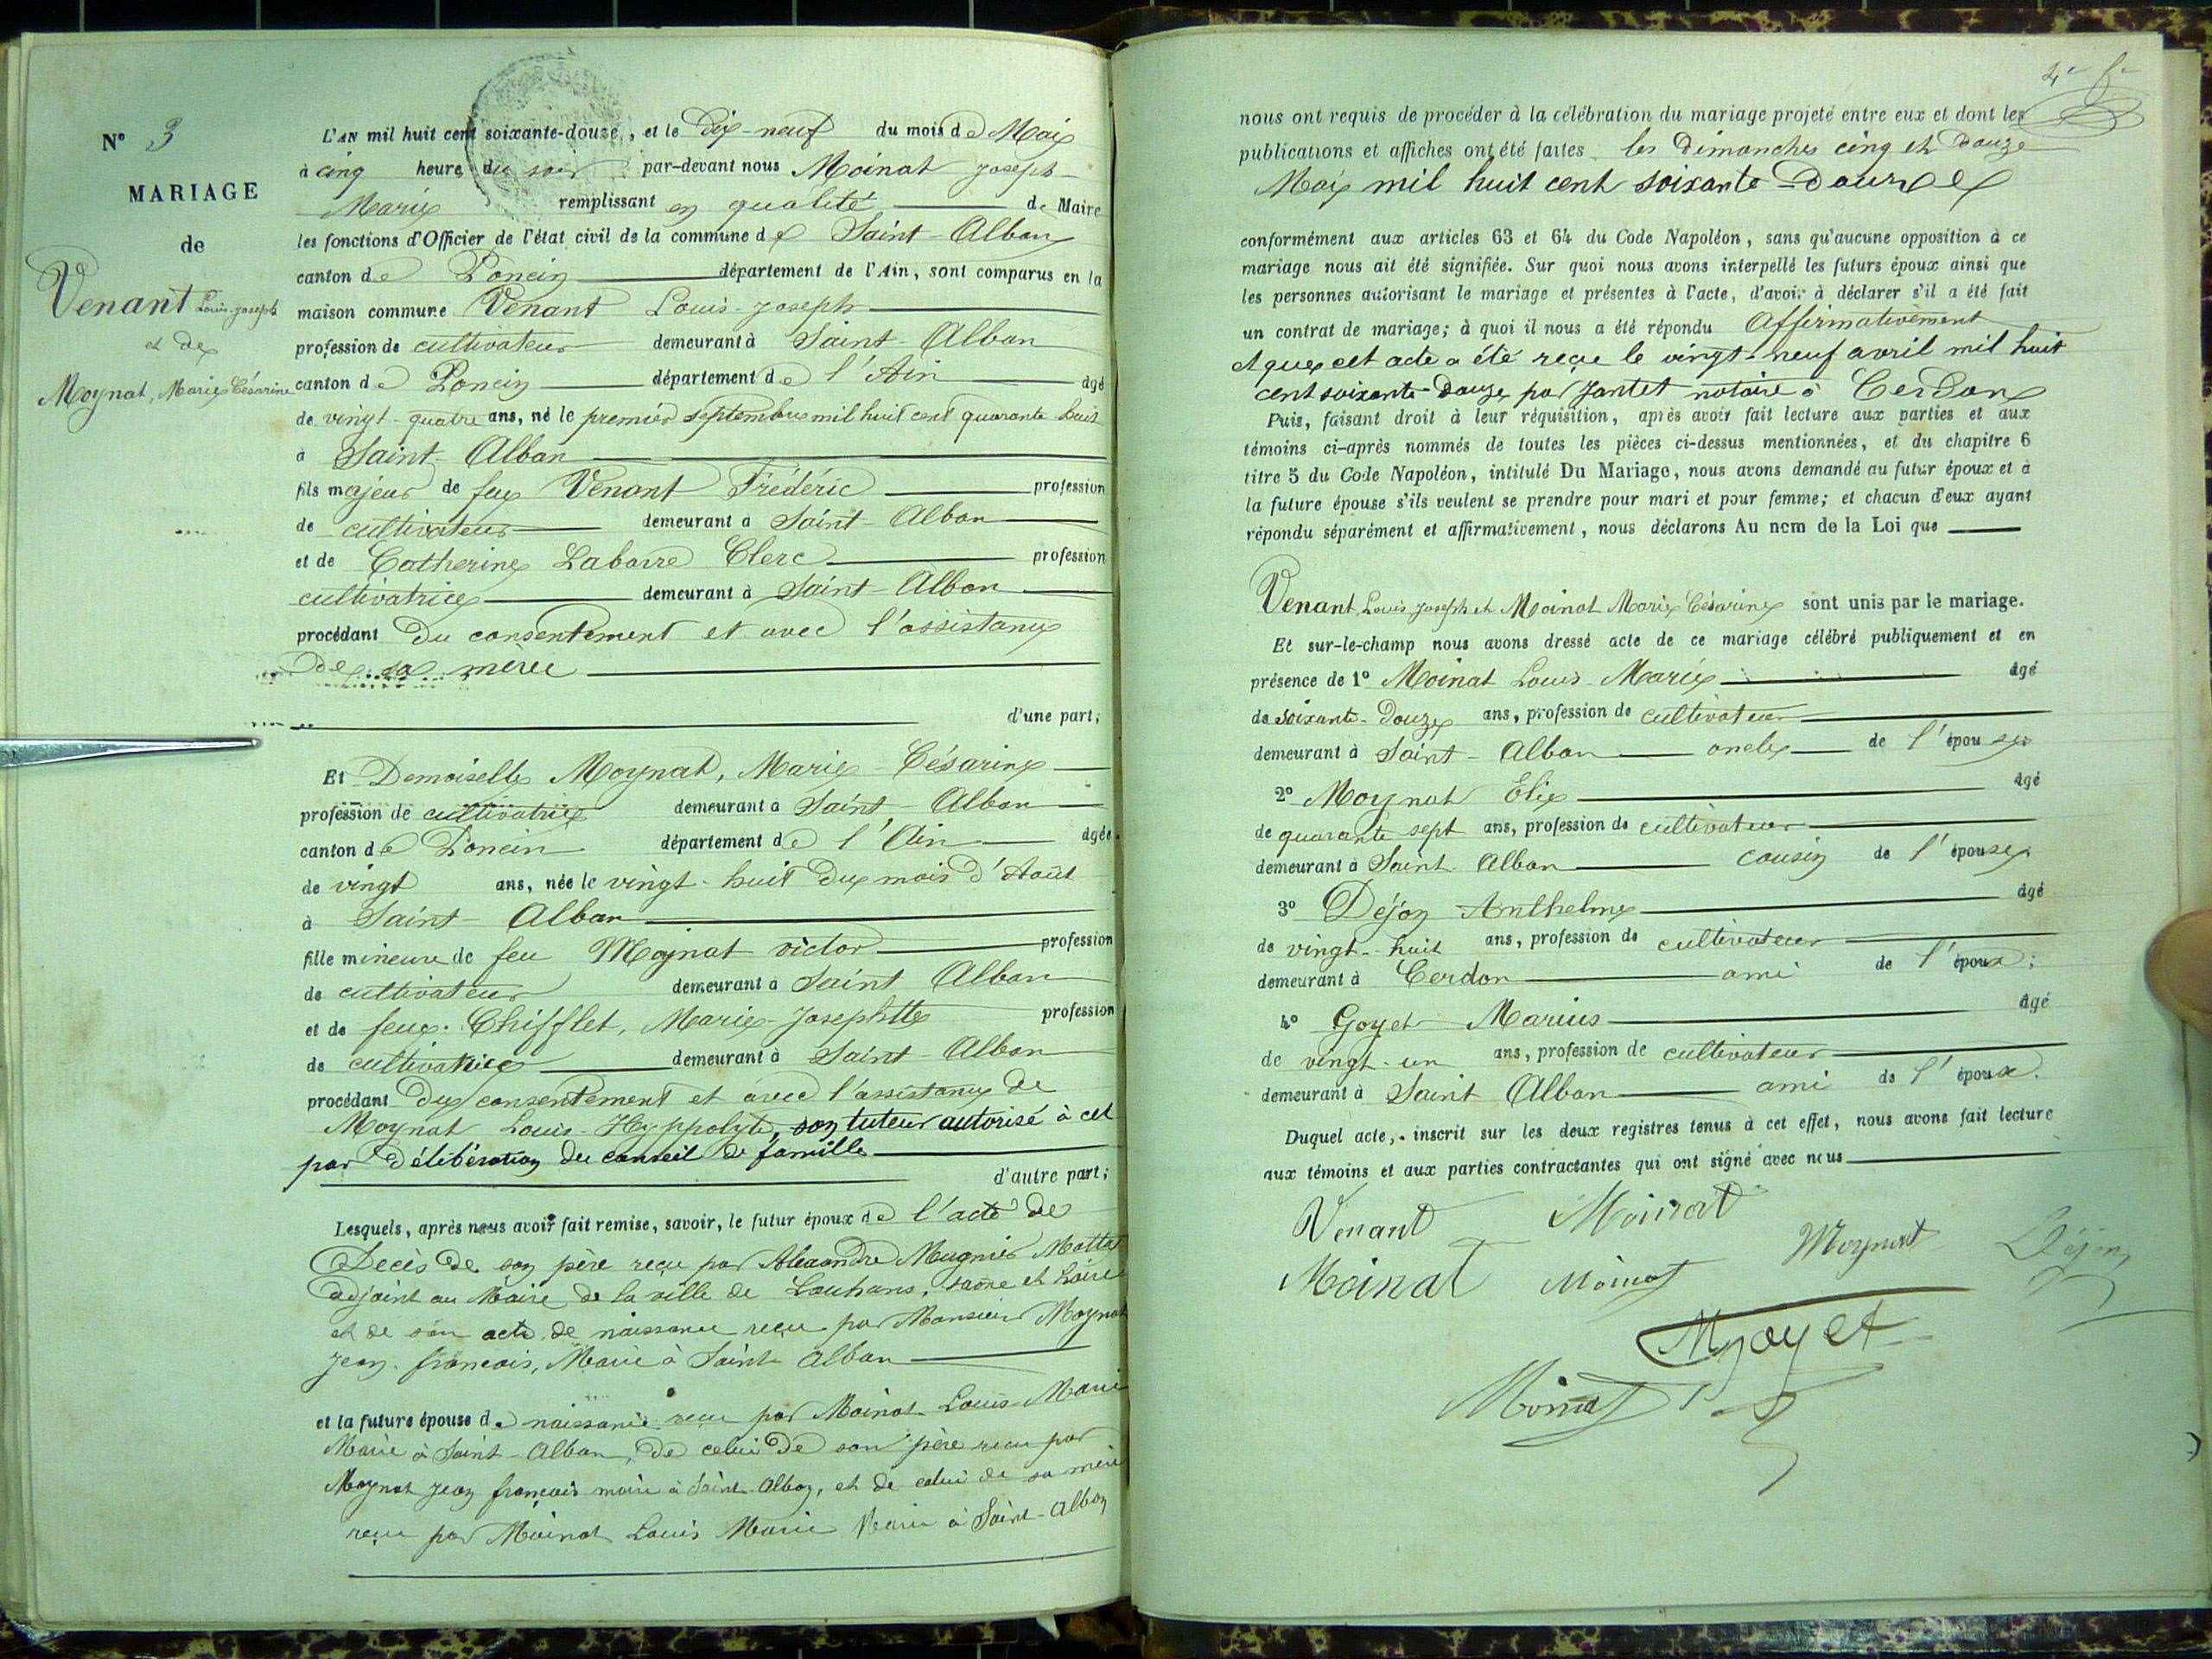 N° 3
MARIAGE
de
Venant Louis-Joseph
et de
Moynat, Marie Césarine
L'AN mil huit cent soixante-douze, et le dix-neuf du mois de Mai
à cinq heure du soir par-devant nous Moinat Joseph-
Marie remplissant en qualité de Maire
les fonctions d'Officier de l'état civil de la commune de Saint-Alban
canton de Poncin département de l'Ain, sont comparus en la
maison commune Venant Louis-Joseph
profession de cultivateur demeurant à Saint-Alban
canton de Poncin département de l'Ain âgé
de vingt-quatre ans, né le premier septembre mil huit cent quarante huit
à Saint-Alban
fils majeur de feu Venant Frédéric profession
de cultivateur demeurant à Saint-Alban
et de Catherine Labarre Clerc profession
cultivatrice demeurant à Saint-Alban
procédant du consentement et avec l'assistance
de sa mère
d'une part;
Et Demoiselle Moynat, Marie-Césarine
profession de cultivatrice demeurant à Saint-Alban
canton de Poncin département de l'Ain âgée
de vingt ans, née le vingt-huit du mois d'Août
à Saint-Alban
fille mineure de feu Moynat victor profession
de cultivateur demeurant à Saint Alban
et de feue Chifflet, Marie-Josephtte profession
de cultivatrice demeurant à Saint-Alban
procédant du consentement et avec l'assistance de
Moynat Louis-Hyppolyte, son tuteur autorisé à cet
par délibération du conseil de famille
d'autre part;
Lesquels, après nous avoir fait remise, savoir, le futur époux de l'acte de
Decès de son père reçu par Alexandre Mugnier Mottat
adjoint au Maire de la ville de Louhans, saone et Loire
et de son acte de naissance reçu par Monsieur Moynat
Jean-francois, Maire à Saint Alban
et la future épouse de naissance reçu par Moinat Louis-Marie
Maire à Saint-Alban, de celui de son père reçu par
Moynat Jean francois maire à Saint-Alban, et de celui de sa mère
reçu par Moinat Louis Marie Maire à Saint-Alban
nous ont requis de procéder à la célébration du mariage projeté entre eux et dont les
publications et affiches ont été faites les dimanches cinq et douze
Mai mil huit cent soixante-douze
conformément aux articles 63 et 64 du Code Napoléon, sans qu'aucune opposition à ce
mariage nous ait été signifiée. Sur quoi nous avons interpellé les futurs époux ainsi que
les personnes autorisant le mariage et présentes à l'acte, d'avoir à déclarer s'il a été fait
un contrat de mariage; à quoi il nous a été répondu Affirmativement
et que cet acte a été reçu le vingt-neuf avril mil huit
cent soixante-douze par Jantet notaire à Cerdon
Puis, faisant droit à leur réquisition, après avoir fait lecture aux parties et aux
témoins ci-après nommés de toutes les pièces ci-dessus mentionnées, et du chapitre 6
titre 5 du Code Napoléon, intitulé Du Mariage, nous avons demandé au futur époux et à
la future épouse s'ils veulent se prendre pour mari et pour femme; et chacun d'eux ayant
répondu séparément et affirmativement, nous déclarons Au nom de la Loi que
Venant Louis Joseph et Moinat Marie Césarine sont unis par le mariage.
Et sur-le-champ nous avons dressé acte de ce mariage célébré publiquement et en
présence de 1° Moinat Louis-Marie âgé
de soixante-douze ans, profession de cultivateur
demeurant à Saint-Alban oncle de l'épouse
2° Moynat Elie âgé
de quarante sept ans, profession de cultivateur
demeurant à Saint-Alban cousin de l'épouse
3° Déjoy Anthelme âgé
de vingt-huit ans, profession de cultivateur
demeurant à Cerdon ami de l'époux;
4° Goyet Marius âgé
de vingt-un ans, profession de cultivateur
demeurant à Saint Alban ami de l'époux.
Duquel acte, inscrit sur les deux registres tenus à cet effet, nous avons fait lecture
aux témoins et aux parties contractantes qui ont signé avec nous
Venant Moinat
Moinat Moinat Moynat Déjoy
M goyet
Moinat